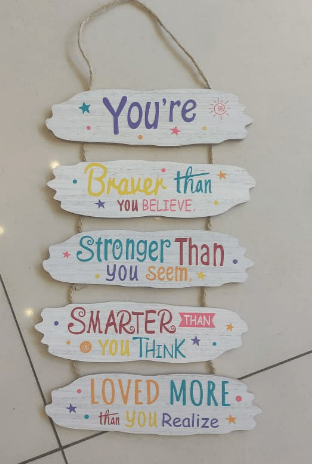 You're
Braver than
YOU BELIEVE.
Stronger Than
you seem.
SMARTER THAN
YOU THINK
LOVED MORE
than YOU Realize